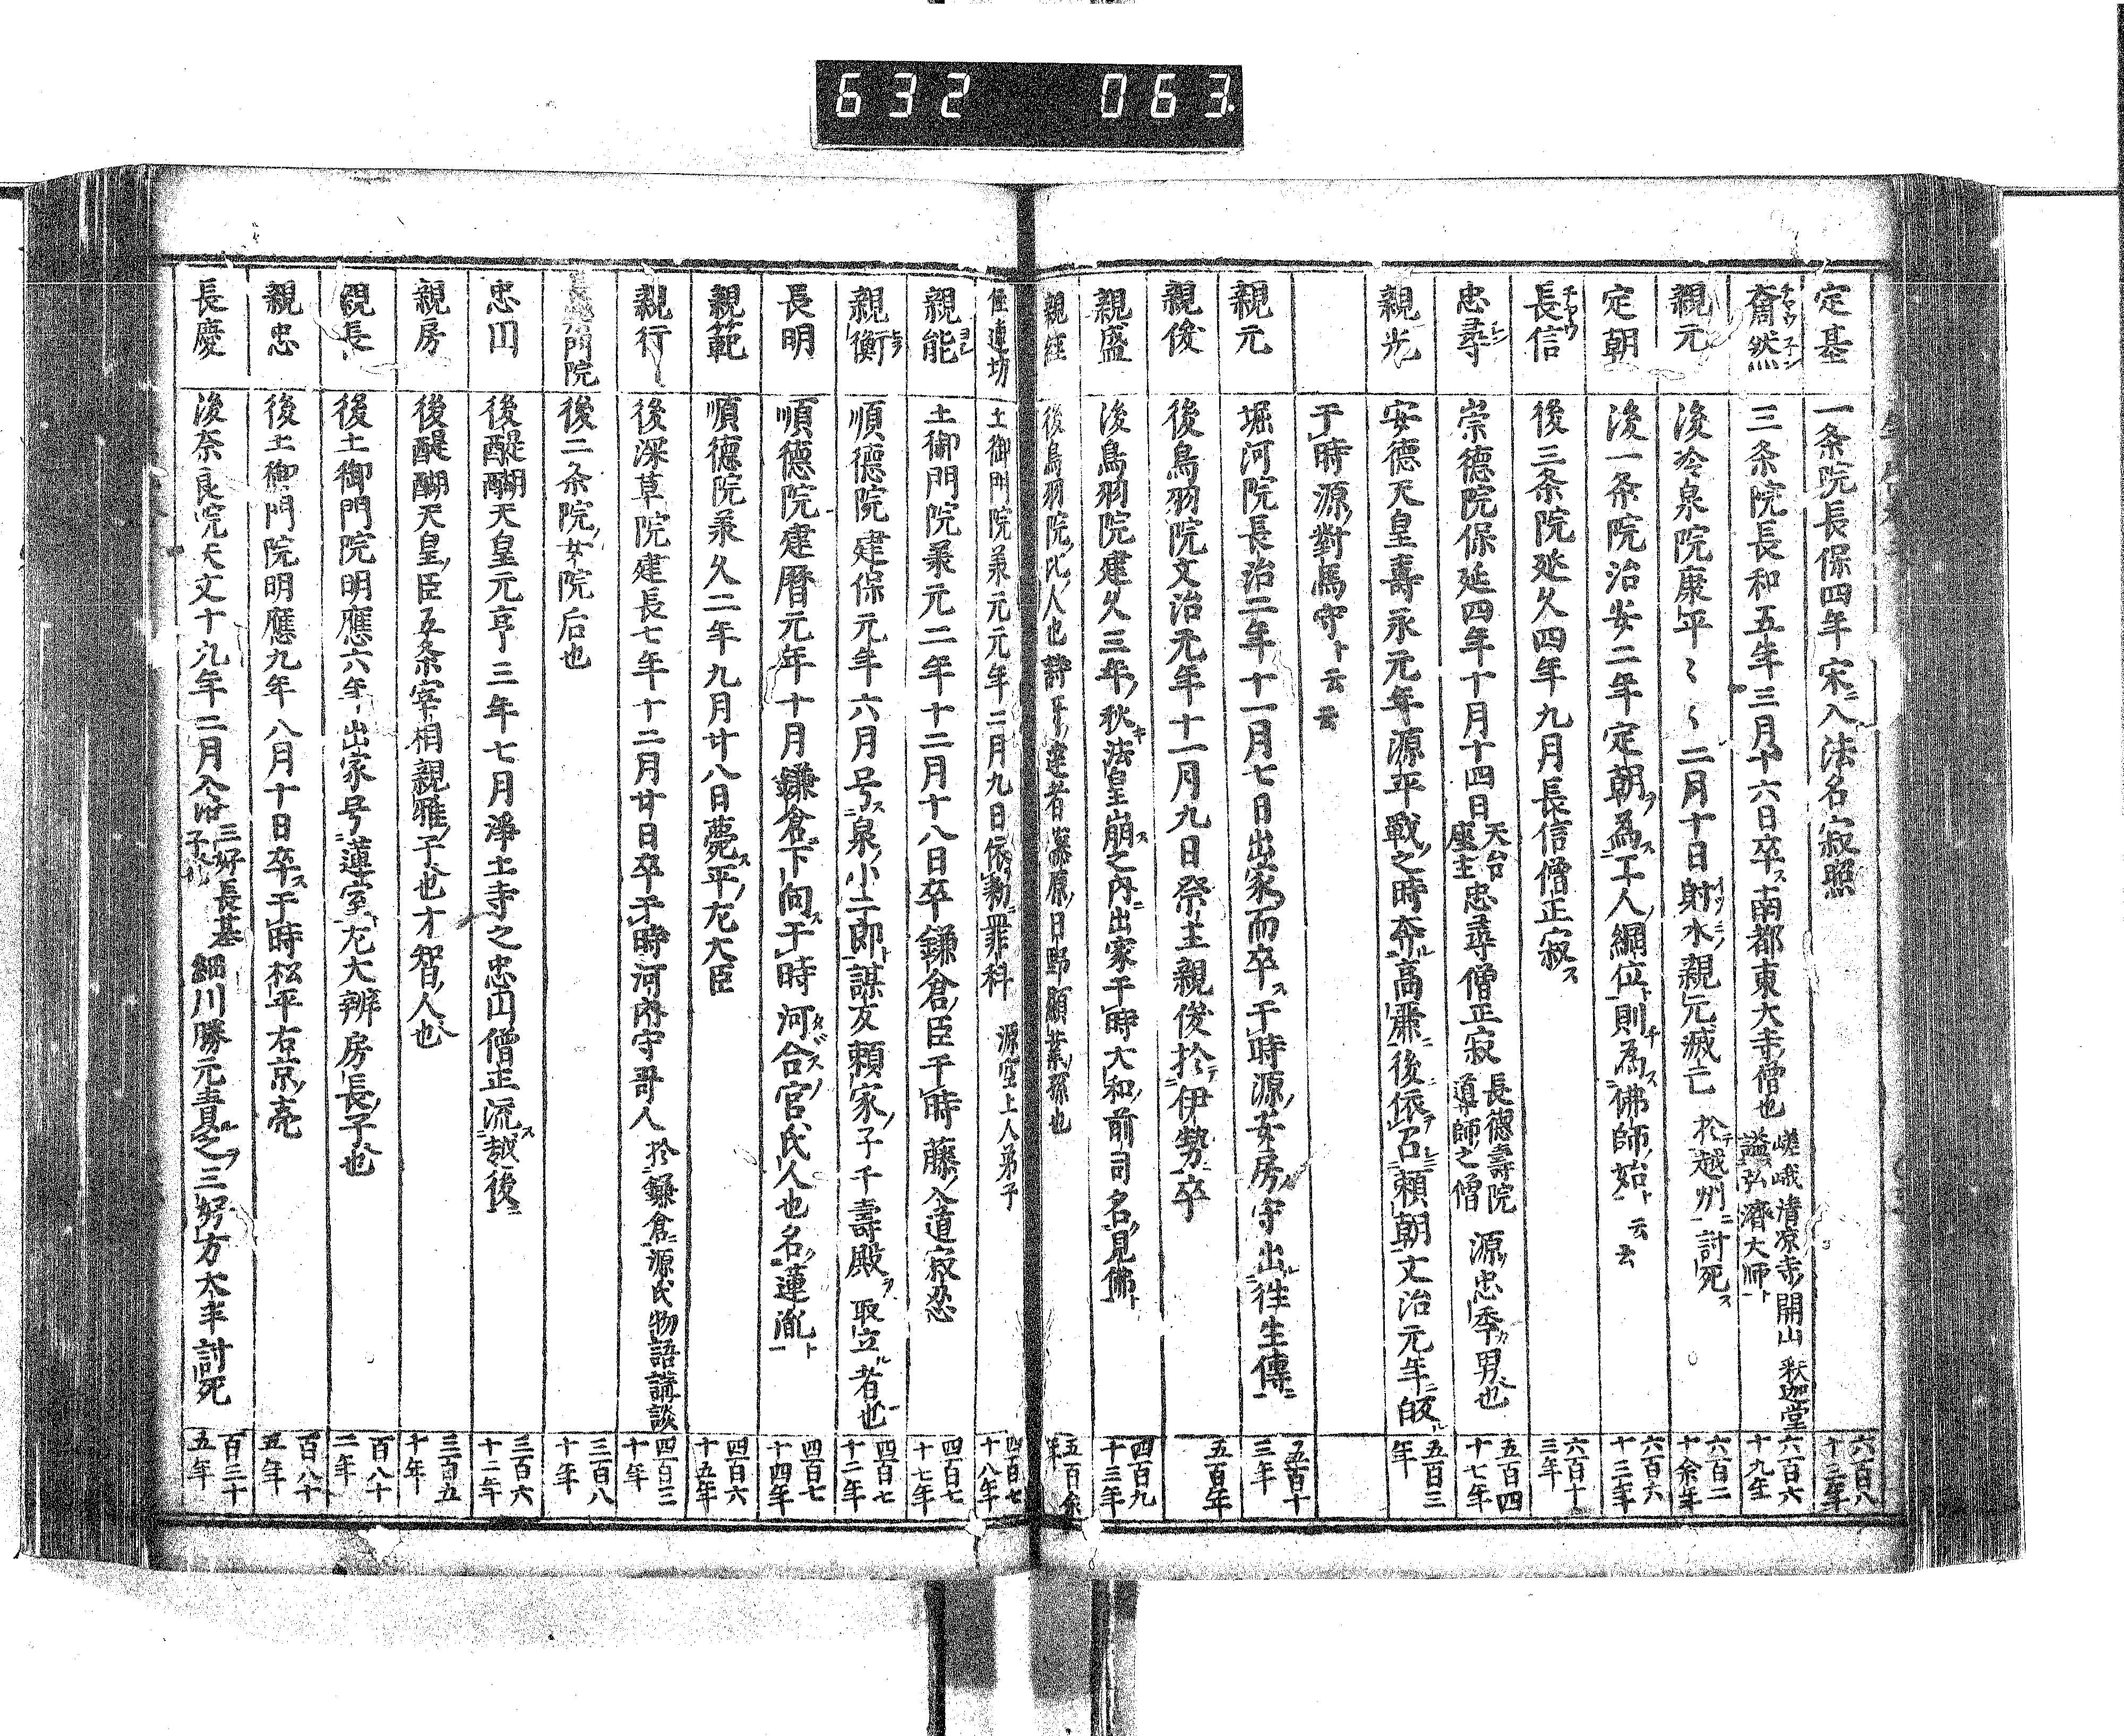 632 063
定基 一条院長保四年宋ニ入法名寂照 六百八十三年
奝然 三条院長和五年三月十六日卒ス南都東大寺ノ僧也 嵯峨清凉寺ノ開山釈迦堂 謚弘濟大師ト 六百六十九年
親元 後冷泉院康平〻〻二月十日射水親元滅亡 於越州ニ討死ス 六百二十余年
定朝 後一条院治安二年定朝ヲ為ス工人ノ綱位ト則為ス佛師ノ始ト云云 六百六十三年
長信 後三条院延久四年九月長信僧正寂ス 六百十三年
忠尋 崇德院保延四年十月十四日天台座主忠尋僧正寂 長德壽院導師之僧 源忠季カ男也 五百四十七年
親光 安德天皇壽永元年源平戰之時奔高麗ニ後依召頼朝文治元年ニ皈ト 五百三年
于時源ノ對馬守ト云云
親元 堀河院長治二年十一月七日出家而卒ス于時源ノ安房ノ守出往生傳ニ 五百十三年
親俊 後鳥羽院文治元年十一月九日祭主親俊於テ伊勢ニ卒 五百年
親盛 後鳥羽院建久三年ノ秋法皇崩ス之内ニ出家于時大和ノ前司名ノ見佛ト 四百九十三年
親経 後鳥羽院ノ比ノ人也詩ノ達者藤原ノ日野顧業ノ孫也 五百余年
住連坊 土御門院兼元元年二月九日依勅ニ罪科 源空上人弟子 四百七十八年
親能 土御門院兼元二年十二月十八日卒鎌倉ノ臣于時藤ノ入道寂忍 四百七十七年
親衡 順德院建保元年六月号ス泉ノ小二郎ト謀友頼家ノ子千壽殿ヲ取立ル者也 四百七十二年
長明 順德院建暦元年十月鎌倉ニ下向ス于時河合ノ官ノ氏人也名ノ蓮胤ト 四百七十四年
親範 順德院兼久二年九月廿八日薨ス平ノ左大臣 四百六十五年
親行 後深草院建長七年十二月廿日卒于時河内守哥人 於鎌倉ニ源氏物語講談 四百三十年
門院 後二条院ノ女院后也 三百八十年
忠円 後醍醐天皇元亨三年七月淨土寺之忠円僧正流ス越後ニ 三百六十二年
親房 後醍醐天皇ノ臣五条宰相親雅ノ子也才智ノ人也 三百五十年
親長 後土御門院明應六年出家号ニ蓮室ト左大辨房長ノ子也 百八十二年
親忠 後土御門院明應九年八月十日卒ス于時松平右京ノ亮 百八十五年
長慶 後奈良院天文十九年二月 三好長基子 細川勝元責之ヲ三好方太半討死 百三十五年